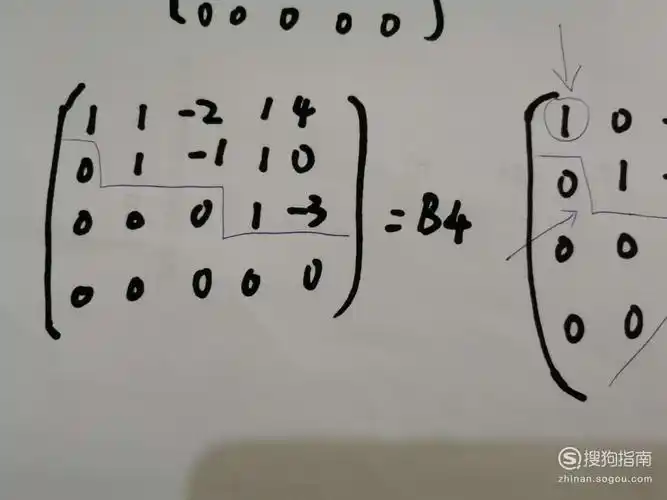 0 0 0 0 0
1 1 -2 1 4
0 1 -1 1 0
0 0 0 1 -3
0 0 0 0 0
= B4
1 0
0 1
0 0
0 0
搜狗指南
zhinan.sogou.com